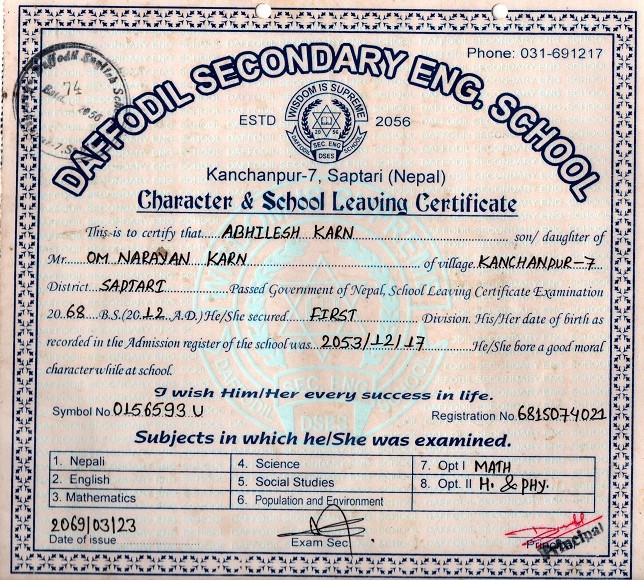 Phone: 031-691217
DAFFODIL SECONDARY ENG. SCHOOL
WISDOM IS SUPREME
ESTD 2056
20 56
SEC. ENG
DAFFODIL SCHOOL
DSES
Kanchanpur-7, Saptari (Nepal)
Character & School Leaving Certificate
This is to certify that....ABHILESH KARN....son/ daughter of
Mr....OM NARAYAN KARN....of village.KANCHANPUR-7
District....SAPTARI....Passed Government of Nepal, School Leaving Certificate Examination
20.68..B.S.(2012.A.D.) He/She secured....FIRST....Division. His/Her date of birth as
recorded in the Admission register of the school was....2053/12/17....He/She bore a good moral
character while at school.
I wish Him/Her every success in life.
Symbol No.0156593 U
Registration No.6815074021
Subjects in which he/She was examined.
1. Nepali
4. Science
7. Opt I MATH
2. English
5. Social Studies
8. Opt. II H. & PHY.
3. Mathematics
6. Population and Environment
2069/03/23
Date of issue
Exam Sec.
Principal